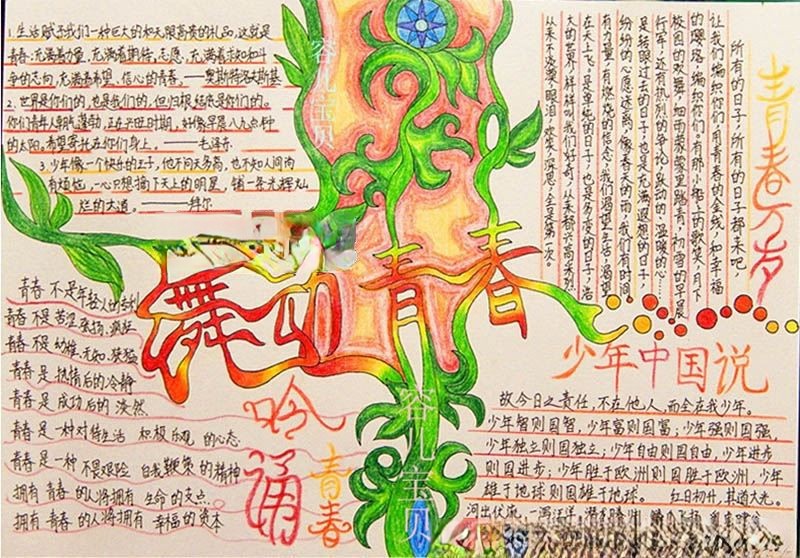 1.生活赋予我们一种巨大的和无限高贵的礼品,这就是
青春:充满着力量,充满着期待,志愿,充满着求知和斗
争的志向,充满着希望、信心的青春。——奥斯特洛夫斯基
2.世界是你们的,也是我们的,但归根结底是你们的。
你们青年人朝气蓬勃,正在兴旺时期,好像早晨八九点钟
的太阳。希望寄托在你们身上。——毛泽东
3.少年像一个快乐的王子,他不问天多高,也不知人间尚
有烦恼,一心只想摘下天上的明星,铺一条光辉灿
烂的大道。——拜尔
舞动青春
青春 不是年轻人的专利
青春 不是 苦涩、张扬、疯狂
青春 不是 幼稚、无知、狭猛
青春 是 热情后的冷静
青春 是 成功后的 淡然
青春 是一种对待生活 积极乐观 的心态
青春 是一种 不畏艰险 自我鞭策 的精神
拥有 青春 的人将拥有 生命 的支点
拥有 青春 的人将拥有 幸福 的资本
吟诵
青春
青春万岁
所有的日子,所有的日子都来吧,
让我们编织你们,用青春的金线,和幸福
的璎珞,编织你们。有那小船上的歌笑,月下
校园的欢舞,细雨蒙蒙里踏青,初雪的早晨
行军,还有热烈的争论,跃动的、温暖的心……
是转眼过去的日子,也是充满遐想的日子,
纷纷的心愿迷离,像春天的雨,我们有时间,
有力量,有燃烧的信念,我们渴望生活,渴望
在天上飞。是单纯的日子,也是多变的日子,浩
大的世界,样样叫我们好奇,从来都兴高采烈,
从来不淡漠,眼泪,欢笑,深思,全是第一次。
少年中国说
故今日之责任,不在他人,而全在我少年。
少年智则国智,少年富则国富;少年强则国强,
少年独立则国独立;少年自由则国自由,少年进步
则国进步;少年胜于欧洲则国胜于欧洲,少年
雄于地球则国雄于地球。 红日初升,其道大光。
河出伏流,一泻汪洋。
容儿宝贝
容儿宝贝